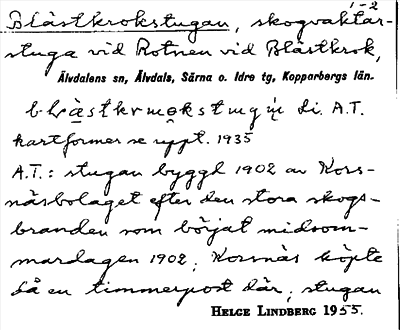 1-2
Blåstkrokstugan, skogvaktar-
stuga vid Rotnen vid Blåstkrok,
Älvdalens sn, Älvdals, Särna o. Idre tg, Kopparbergs län.
di. A.T.
kartformer se uppt. 1935
A.T.: stugan byggd 1902 av Kors-
näsbolaget efter den stora skogs-
branden som börjat midsom-
mardagen 1902; Korsnäs köpte
då en timmerpost där; stugan
HELGE LINDBERG 1955.